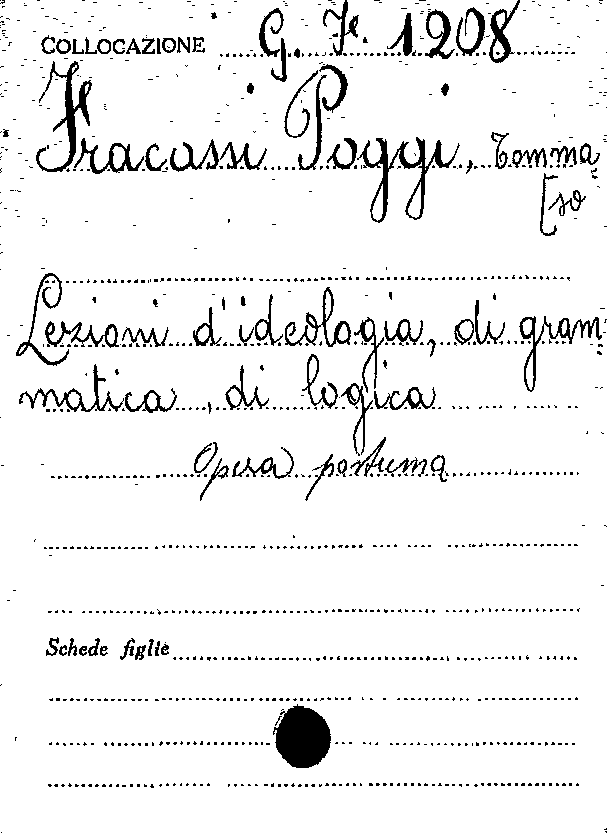 COLLOCAZIONE G. F. 1208
Fracassi Poggi, Tomma=
[so
Lezioni d'ideologia, di gram=
matica, di logica
Opera postuma
Schede figlie